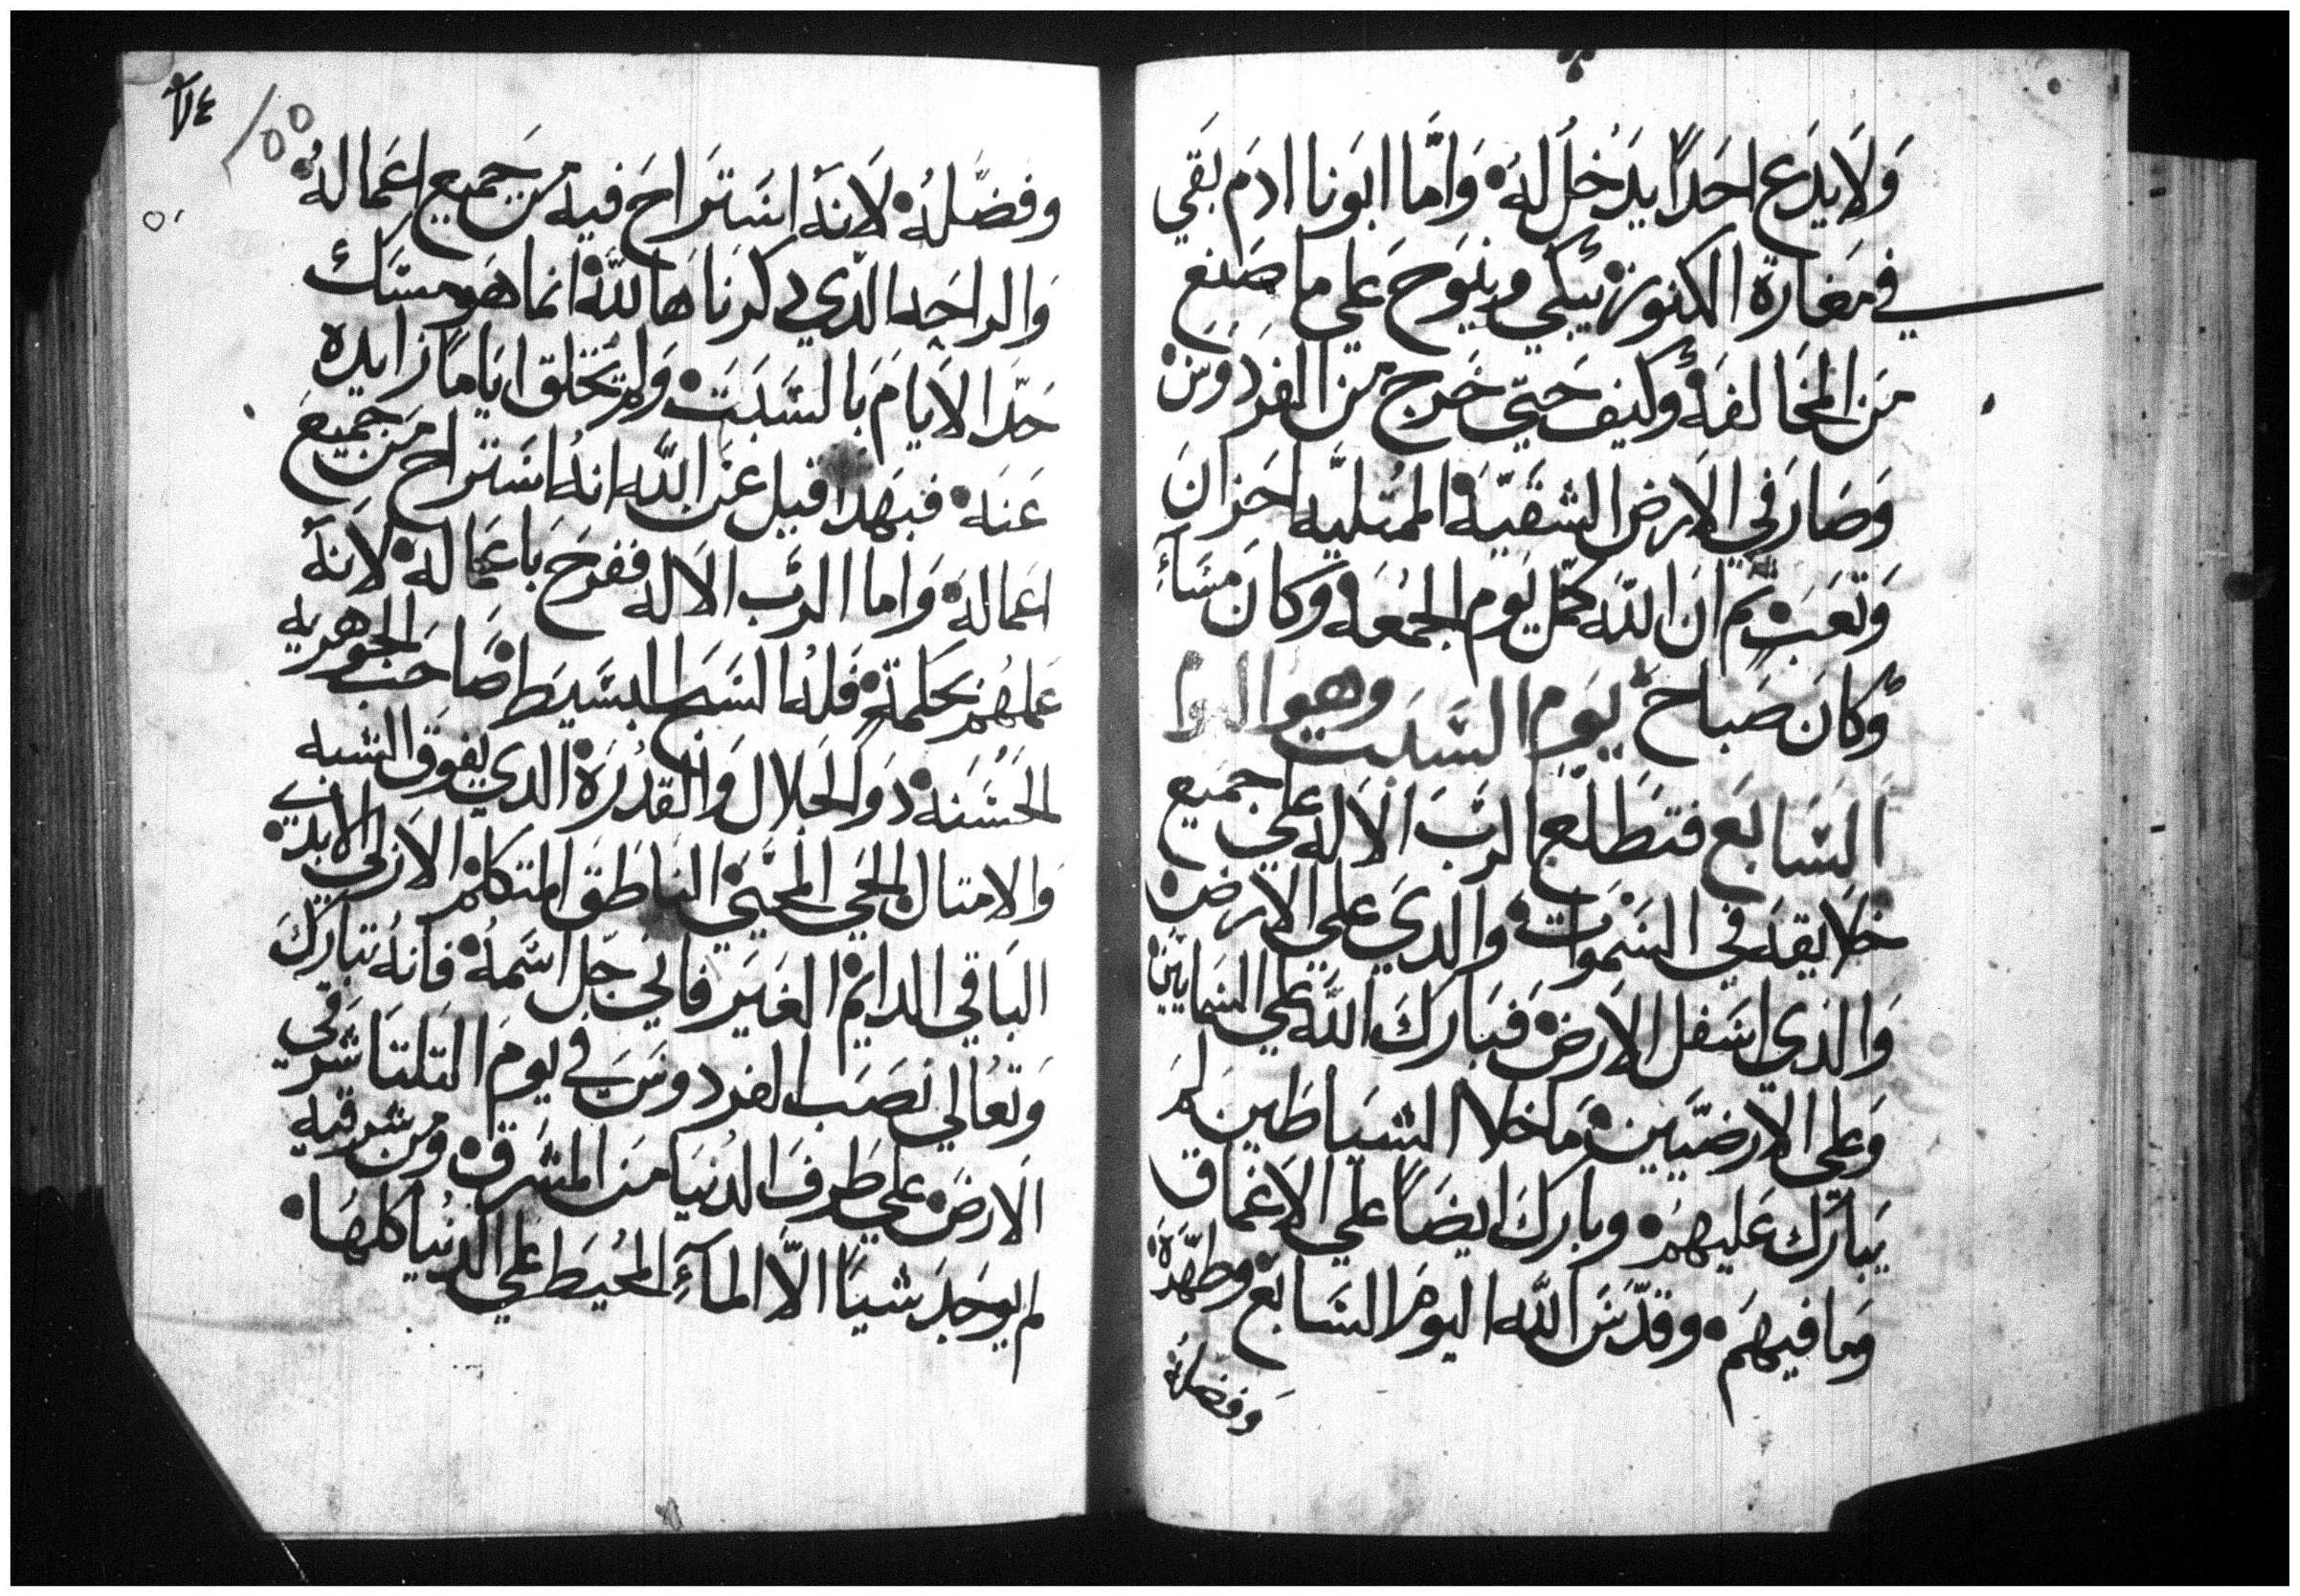 وَلَا يدَع احَدًا يدَخُل لهُ • وَامَّا ابَونا ادَم بَقَي
في مَغارة الكنوز • يَبكي وينوح عَلي ما صَنع
مَن المخَالفه • وكيف حَتي خَرج من الفردَوس •
وَصَار في الارض الشقيّه • الممتليَه احَزانَ
وَتعَب • تم انَ اللّه كمّل يَوم الجمُعَه وكانَ مَسَاءِ
وكانَ صَباح يَوم السَبت وهو اليوم
السَابَع فتطَلع الربَ الالاه عَلي جميَع
خلايقه في السَموَات • والدي علي الارض •
وَالذي اسَفل الارض • فبَارك اللّه عَلي السَمايين •
وَعلي الارضيّين • مَا خلا الشيَاطَين لم
يَباَرك عَليهم • وبارك ايضَاً علي الاعَماق
وَما فيهَم • وقدّسَ اللّه اليوم السَابَع وطهّرهُ •
وَفضلهُ
٧٤
155
وفضّلهُ • لَانهَ استَراحَ فيه من جَميع اعَماله •
وَالراحَه الدّي دكرَناهَا للّه • انما هَو مسَك
حَدّا الايامَ بَالسَبَت • وَلم يَخلق ايَامًا زايده
عَنه • فبهَدا قيل عَن اللّه انهُ استَراح مَن جَميَع
اعَماله • وَاما الربَ الالاه ففرحَ باعَماله • لَانهَ
عَملهُم بَكلمَته • فلهُ السَبَح البسَيط • صَاحَب الجوهريه
الحَسَنه • دو الجلال وَالقدَرة • الدي يفوق الشبه
وَالامتال • الحَي المحَيي • الناطَق المتكلم • الازلي الابدي •
البَاقي الدايم الغيَر فاني جَل اسَمهُ • فانهُ تبارك
وَتعَالي نصَب الفردوسَ في يومَ التلتا شرقي
الارضَ علي طَرفَ الدُنيَا مَن المشَرق • ومن شرقيه
لم يوجَد شيئًا الّا المآءِ المحُيَط عَلي الدنيا كلهَا •